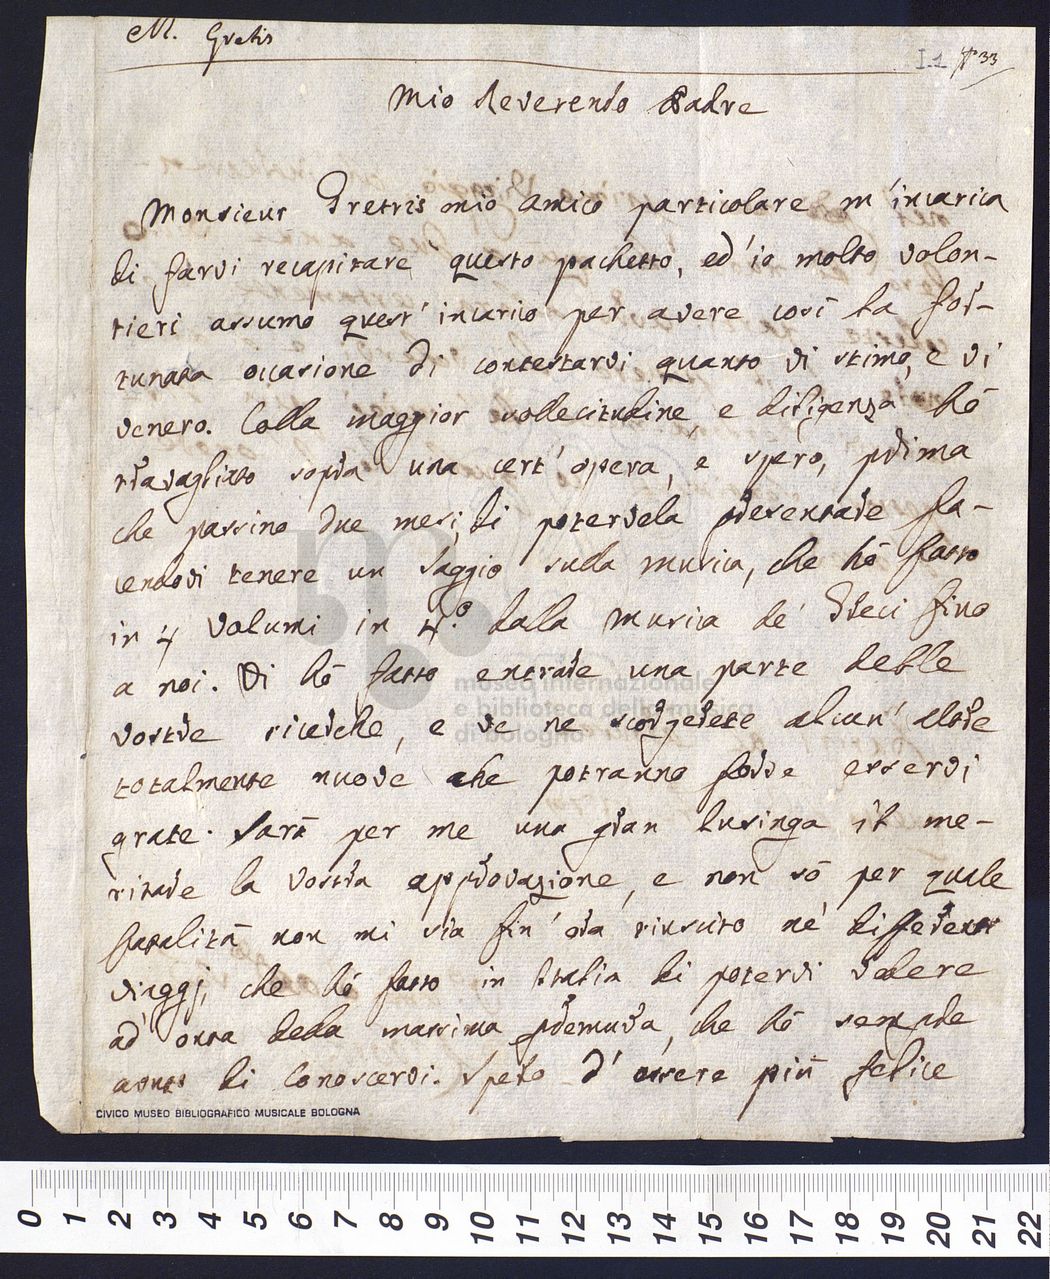 M. Gretis
I.1 33
Mio Reverendo Padre
Monsieur Gretris mio amico particolare m'incarica
di farvi recapitare questo pachetto, ed'io molto volon-
tieri assumo quest'incarico per avere così la for-
tunata occasione di contestarvi quanto vi stimo, e vi
venero. Colla maggior sollecitudine, e diligenza hò
travagliato sopra una cert'opera, e spero, prima
che passino due mesi, di potervela presentare fa-
cendovi tenere un saggio sulla musica, che hò fatto
in 4 volumi in 4.º dalla musica de' Greci fino
a noi. Vi hò fatto entrare una parte delle
vostre ricerche, e ve ne scorgerete alcun'altre
totalmente nuove che potranno forse esservi
grate. Sarà per me una gran lusinga il me-
ritare la vostra approvazione, e non sò per quale
fatalità non mi sia fin'ora riuscito ne' differenti
viaggj, che hò fatto in Italia di potervi vedere
ad'onta della massima premura, che hò sempre
avuta di conoscervi. Spero d'essere più felice
museo internazionale
e biblioteca della musica
di bologna
CIVICO MUSEO BIBLIOGRAFICO MUSICALE BOLOGNA
0 1 2 3 4 5 6 7 8 9 10 11 12 13 14 15 16 17 18 19 20 21 22